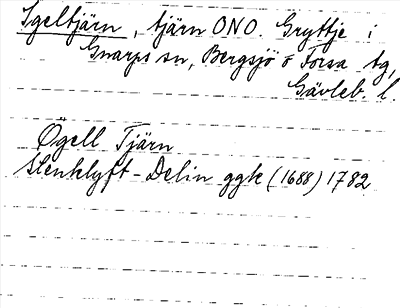 Igeltjärn, tjärn ONO. Gryttje i
Gnarps sn, Bergsjö o Forsa tg,
Gävleb. l.
Ögell Tjärn
Stenklyft-Delin ggk (1688) 1782